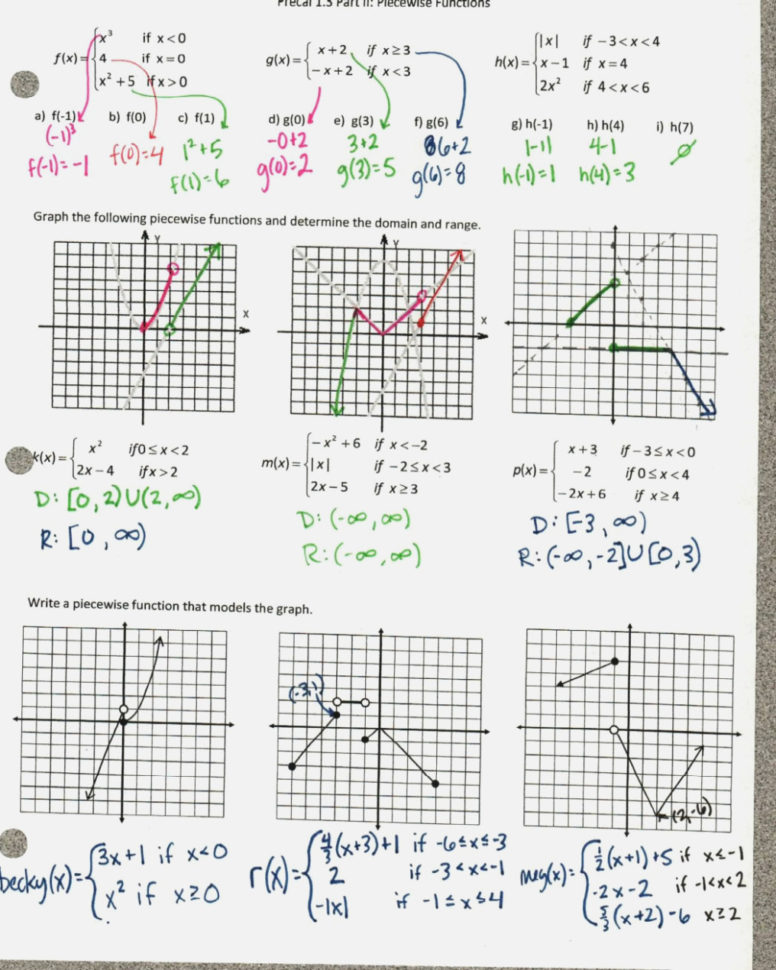 Precal 1.3 Part II: Piecewise Functions
f(x)= { x³ if x<0
4 if x=0
x²+5 if x>0
g(x)= { x+2, if x≥3
−x+2 if x<3
h(x)= { |x| if −3<x<4
x−1 if x=4
2x² if 4<x<6
a) f(-1) b) f(0) c) f(1) d) g(0) e) g(3) f) g(6) g) h(-1) h) h(4) i) h(7)
(-1)³
f(-1)=-1
f(0)=4
1²+5
f(1)=6
-0+2
g(0)=2
3+2
g(3)=5
6+2
g(6)=8
|-1|
h(-1)=1
4-1
h(4)=3
∅
Graph the following piecewise functions and determine the domain and range.
Y
X
Y
X
k(x)= { x² if 0≤x<2
2x−4 if x>2
D: [0,2)U(2,∞)
R: [0,∞)
m(x)= { −x²+6 if x<−2
|x| if −2≤x<3
2x−5 if x≥3
D: (-∞,∞)
R: (-∞,∞)
p(x)= { x+3 if −3≤x<0
−2 if 0≤x<4
−2x+6 if x≥4
D: [-3,∞)
R: (-∞,-2]U[0,3)
Write a piecewise function that models the graph.
(-3,1)
(2,-6)
becky(x)= { 3x+1 if x<0
x² if x≥0
r(x)= { 4/3(x+3)+1 if -6≤x≤-3
2 if -3<x<-1
-|x| if -1≤x≤4
meg(x)= { 1/2(x+1)+5 if x≤-1
-2x-2 if -1<x<2
5/3(x+2)-6 x≥2